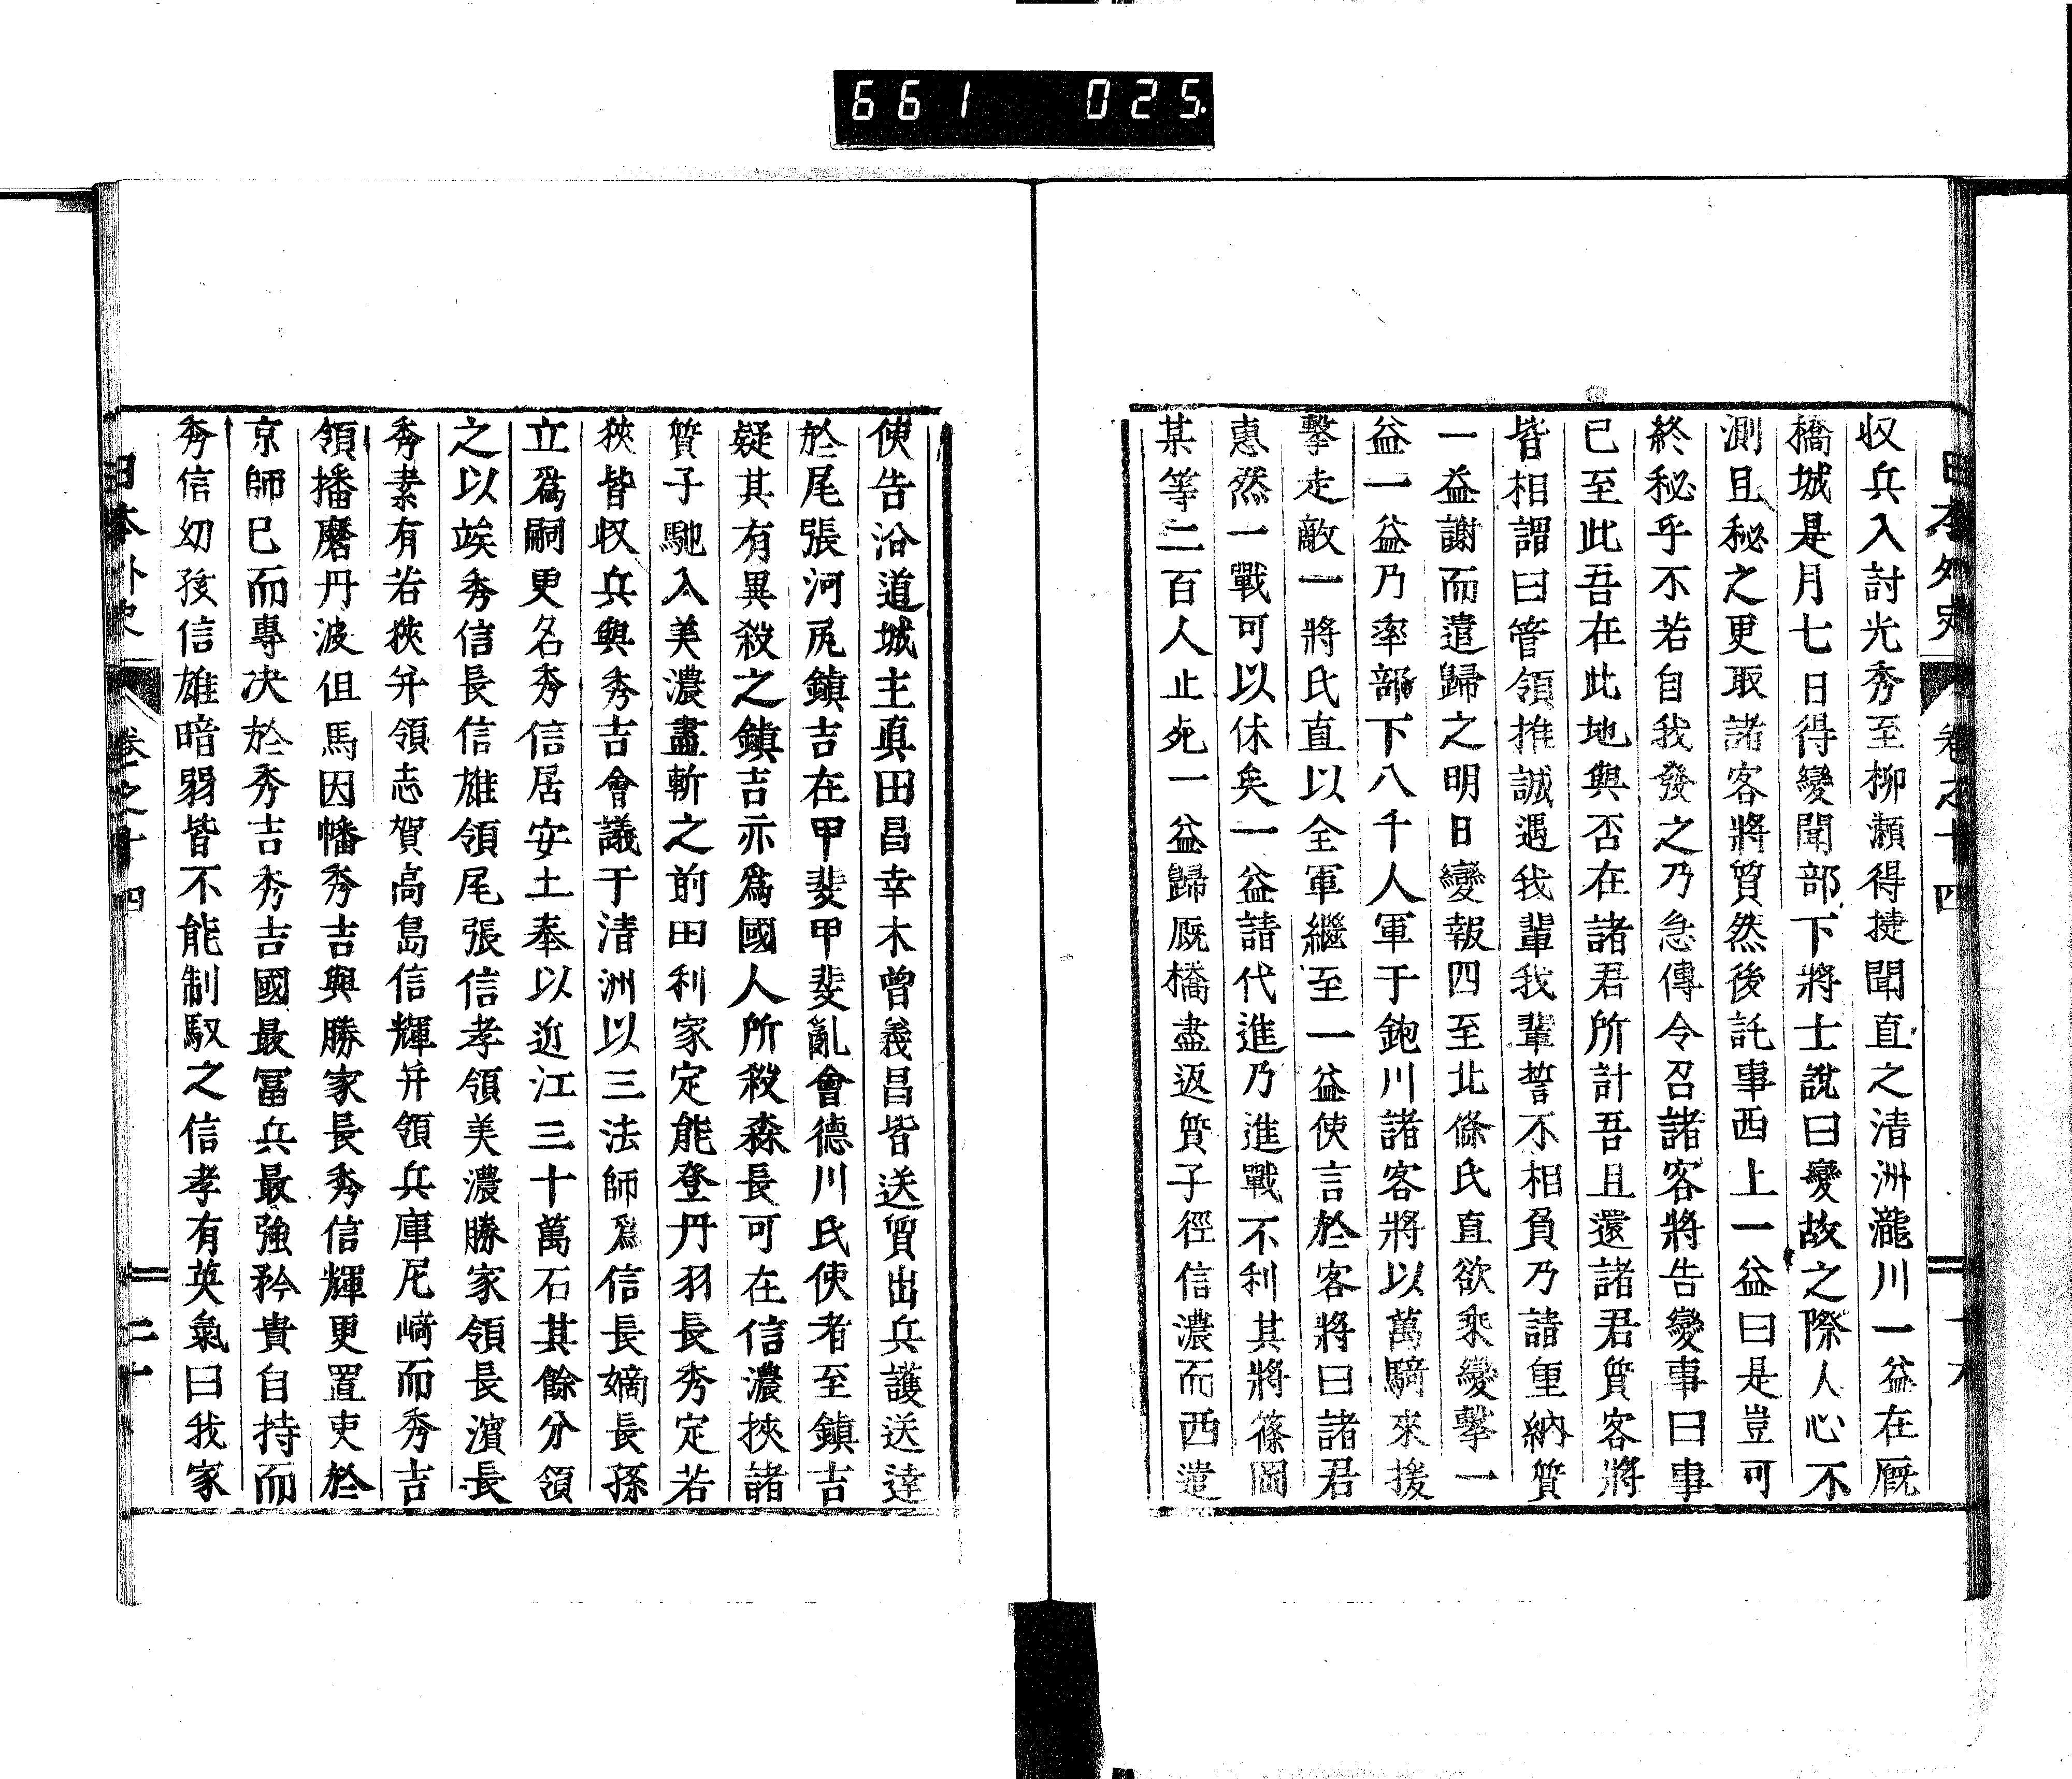 661 025
日本外史 卷之十四 十九
収兵入討光秀至柳瀨得捷聞直之清洲瀧川一益在厩
橋城是月七日得變聞部下將士說曰變故之際人心不
測且秘之更取諸客將質然後託事西上一益曰是豈可
終秘乎不若自我發之乃急傳令召諸客將告變事曰事
已至此吾在此地與否在諸君所計吾且還諸君質客將
皆相謂曰管領推誠遇我輩我輩誓不相負乃請重納質
一益謝而遣歸之明日變報四至北條氏直欲乘變擊一
益一益乃率部下八千人軍于鉋川諸客將以萬騎來援
擊走敵一將氏直以全軍繼至一益使言於客將曰諸君
惠然一戰可以休矣一益請代進乃進戰不利其將篠岡
某等二百人止死一益歸厩橋盡返質子徑信濃而西遣
使告沿道城主眞田昌幸木曾義昌皆送質出兵護送達
於尾張河尻鎭吉在甲斐甲斐亂會德川氏使者至鎭吉
疑其有異殺之鎭吉亦爲國人所殺森長可在信濃挾諸
質子馳入美濃盡斬之前田利家定能登丹羽長秀定若
狹皆収兵與秀吉會議于清洲以三法師爲信長嫡長孫
立爲嗣更名秀信居安土奉以近江三十萬石其餘分領
之以竢秀信長信雄領尾張信孝領美濃勝家領長濱長
秀素有若狹幷領志賀高島信輝幷領兵庫尼﨑而秀吉
領播磨丹波但馬因幡秀吉與勝家長秀信輝更置吏於
京師已而專决於秀吉秀吉國最冨兵最強矜貴自持而
秀信幼孩信雄暗弱皆不能制馭之信孝有英氣曰我家
日本外史 卷之十四 二十